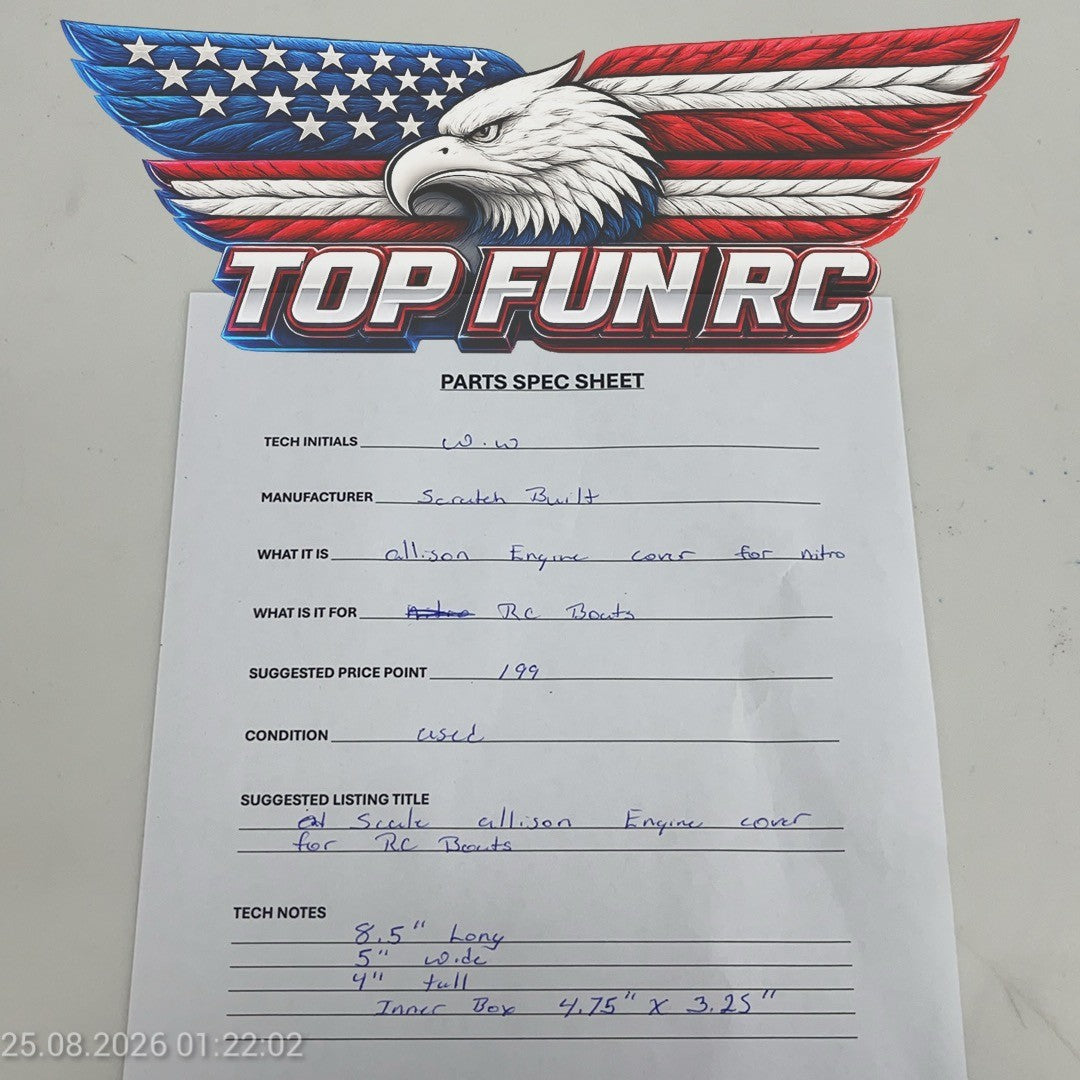 TOP FUN RC
PARTS SPEC SHEET
TECH INITIALS W.W
MANUFACTURER Scratch Built
WHAT IT IS allison Engine cover for nitro
WHAT IS IT FOR nitro RC Boats
SUGGESTED PRICE POINT 199
CONDITION used
SUGGESTED LISTING TITLE
Scale allison Engine cover
for RC Boats
TECH NOTES
8.5" Long
5" wide
4" tall
Inner Box 4.75" X 3.25"
25.08.2026 01:22:02